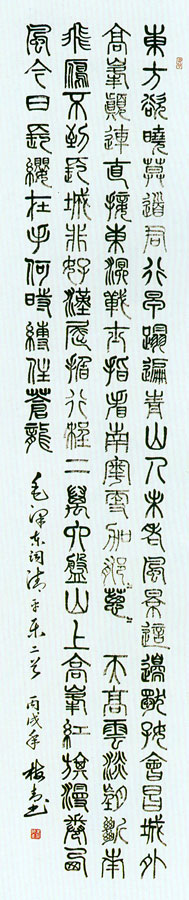 東方欲曉莫道君行早踏遍青山人未老風景這邊獨好會昌城外
高峯顛連直接東溟戰士指看南粵更加鬱〻蔥〻 天高雲淡望斷南
飛鴈不到長城非好漢屈指行程二萬六盤山上高峯紅旗漫卷西
風今日長纓在手何時縛住蒼龍
毛澤東詞清平樂二首 丙戌年